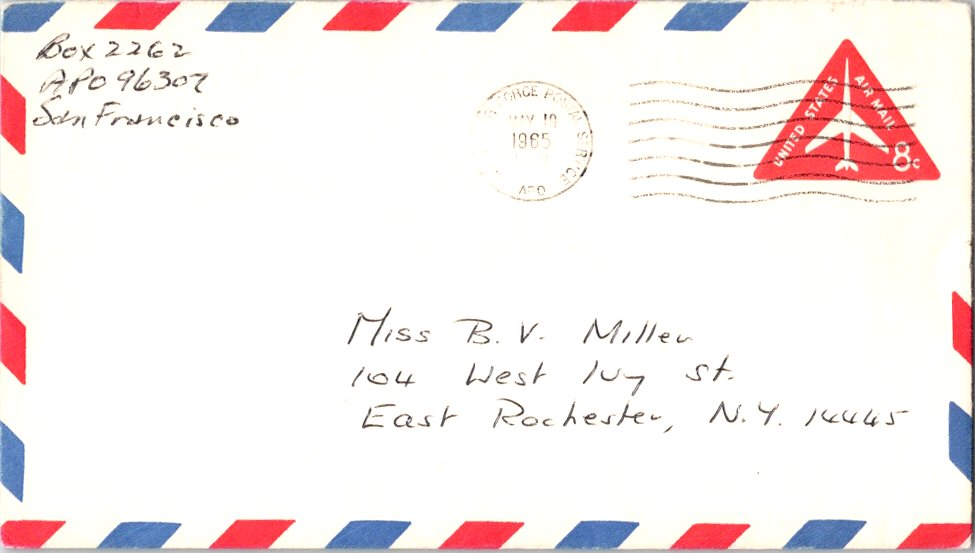 Box 2262
APO 96307
San Francisco
FORCE POSTAL SERVICE
MAY 10
1965
APO
UNITED STATES
AIR MAIL
8c
Miss B. V. Miller
104 West Ivy St.
East Rochester, N.Y. 14445